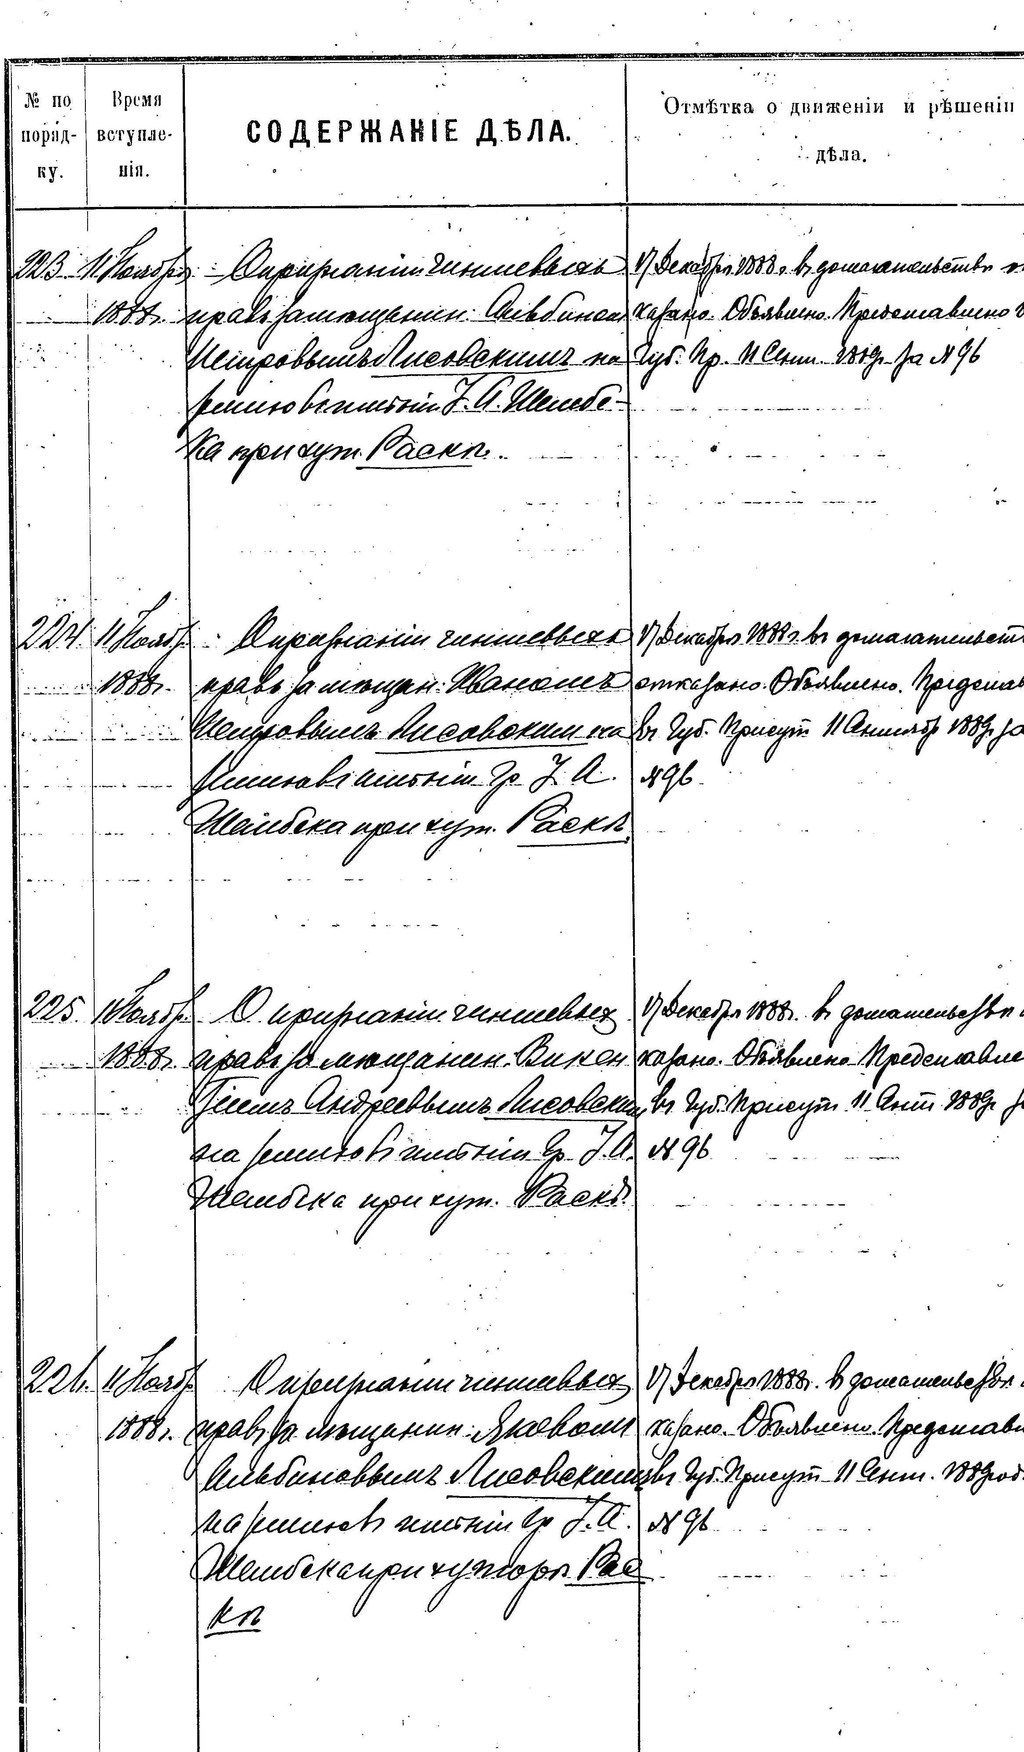 № по порядку.
Время вступленія.
СОДЕРЖАНІЕ ДѢЛА.
Отмѣтка о движеніи и рѣшеніи
дѣла.
223 11 Ноября
1888г.
О признаніи чиншевыхъ
правъ за мѣщанин. Альбином
Петровымъ Лисовскимъ на
землю въ имѣніи І. А. Шембе-
ка при хут. Раскѣ.
17 Декабря 1888г. въ домогательствѣ
казано. Объявлено. Представлено
Губ. Пр. 11 Сент. 1889г. за № 96
224. 11 Ноябр.
1888г.
О признаніи чиншевыхъ
правъ за мѣщан. Иваномъ
Петровымъ Лисовским на
землю въ имѣніи Гр. І. А.
Шембека при хут. Раскѣ.
17 Декабря 1888г. въ домогательст
отказано. Объявлено. Представ
въ Губ. Присут 11 Сентябр 1889г. за
№ 96.
225. 11 Ноябр.
1888г.
О признаніи чиншевых
правъ за мѣщанин. Викен
тіемъ Андреевымъ Лисовским
на землю въ имѣніи Гр. І. А.
Шембека при хут. Раскѣ.
17 Декабря 1888г. въ домогательствѣ
казано. Объявлено Представле
въ Губ. Присут 11 Сент 1889г
№ 96
226. 11 Ноябр.
1888г.
О признаніи чиншевых
правъ за мѣщанин. Яковомъ
Альбиновымъ Лисовскимъ
на землю въ имѣніи Гр І. А.
Шембека при хуторѣ Рас
кѣ
17 Декабря 1888г. въ домогательствѣ
казано. Объявлено. Представл
въ Губ. Присут 11 Сент. 1889
№ 96